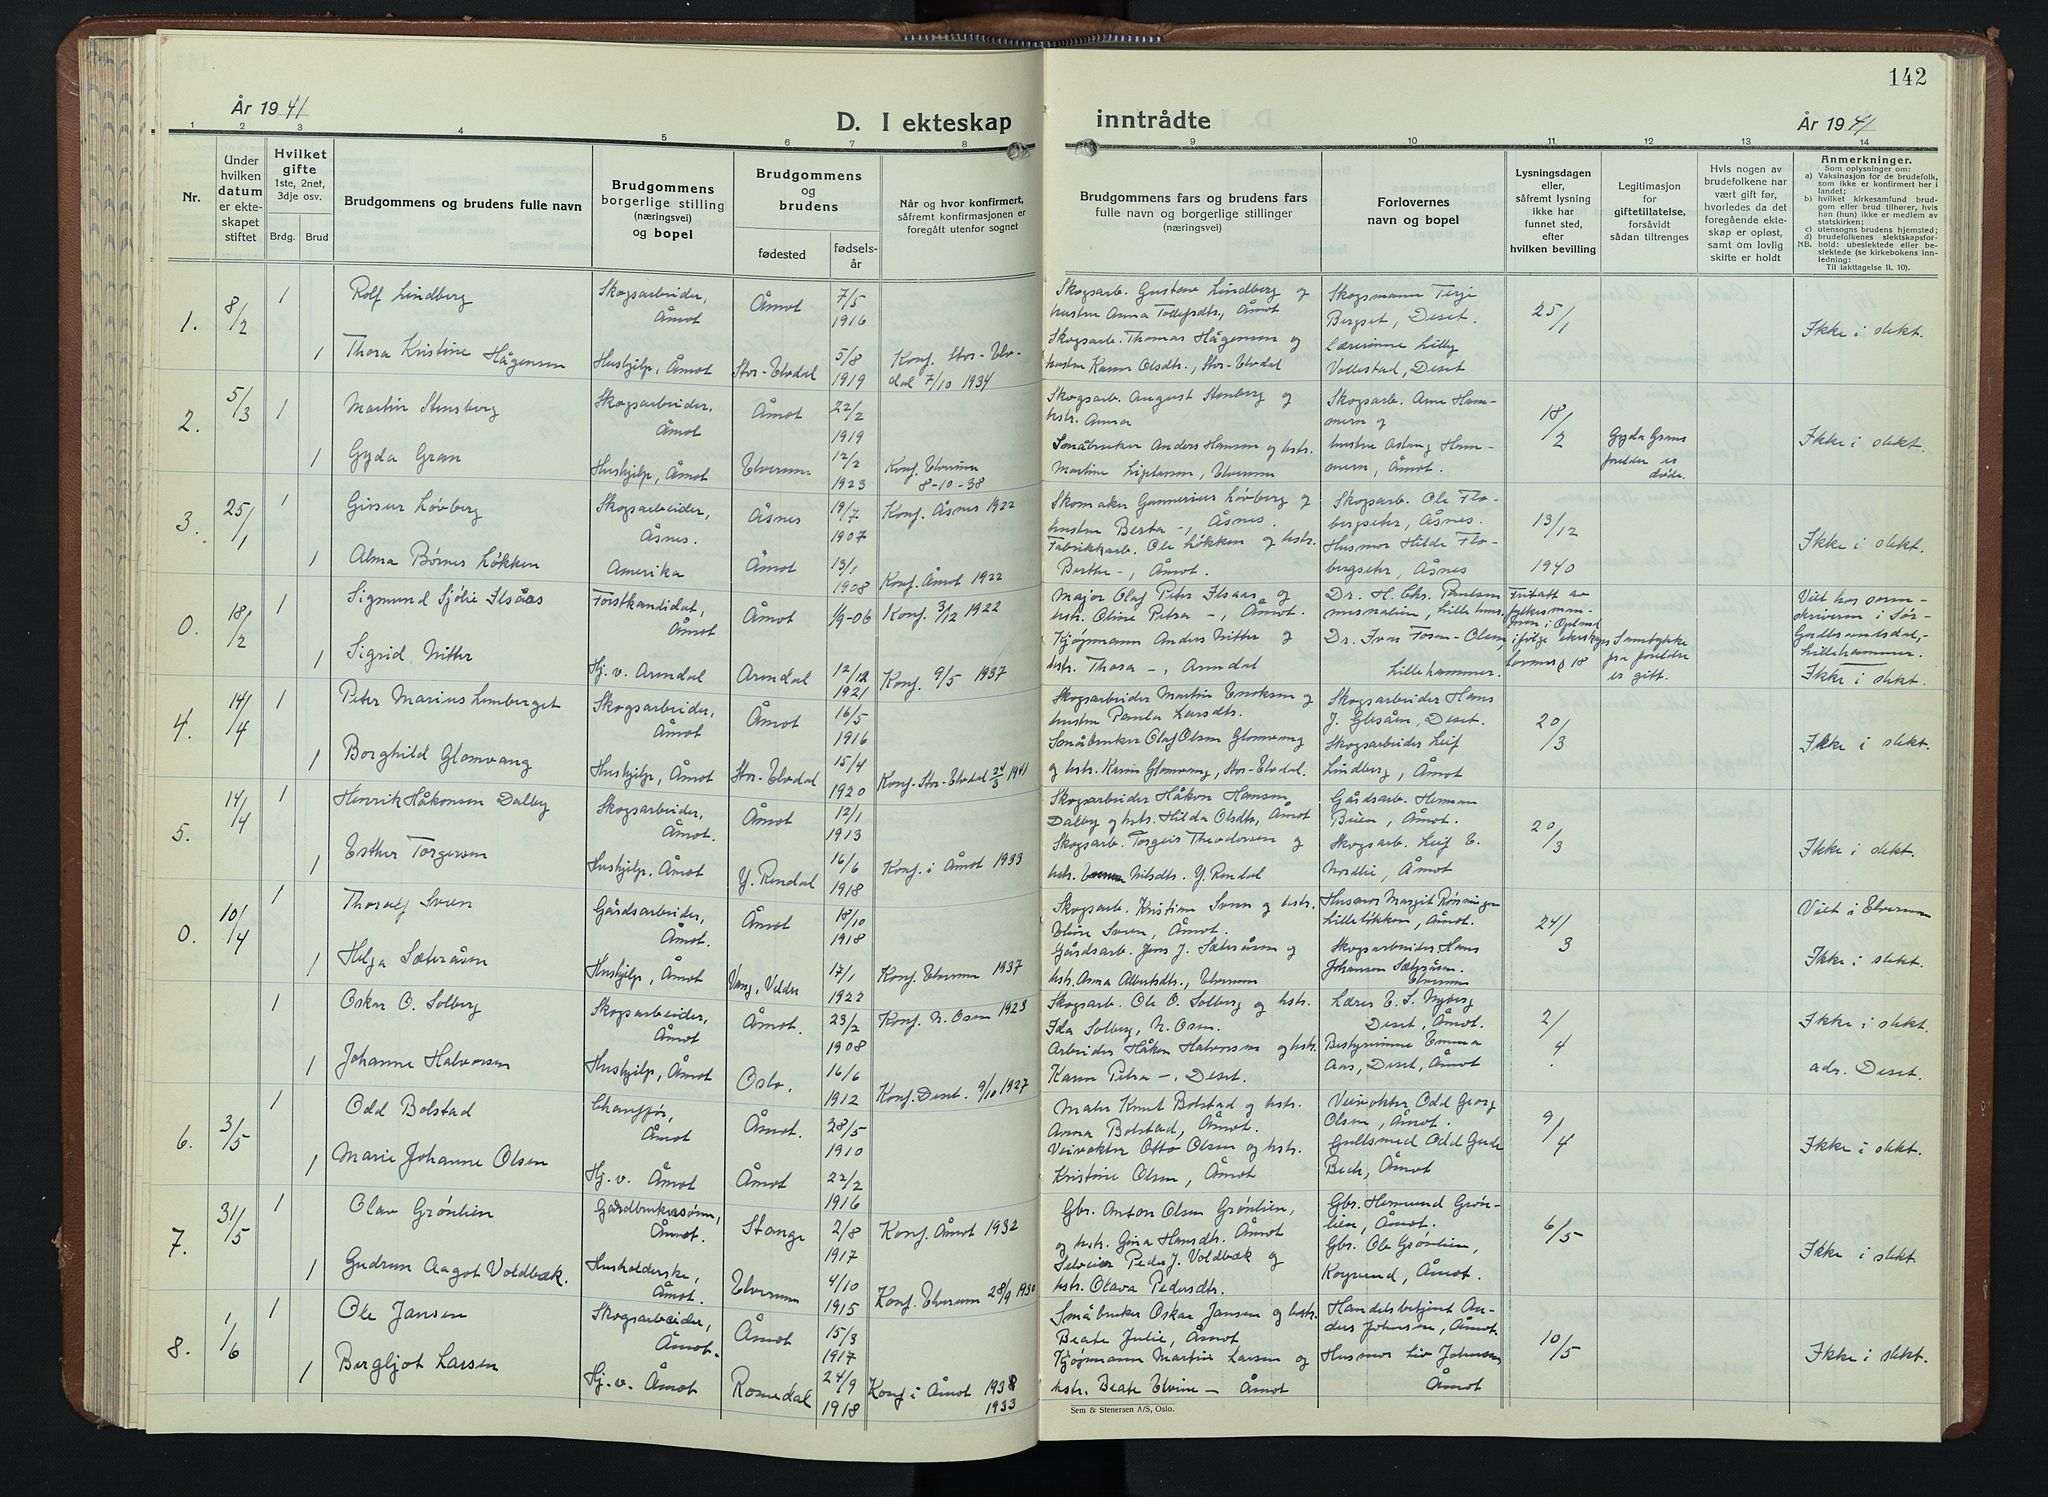 142
År 1941
D. I ekteskap inntrådte
År 1941
1 2 3 4 5 6 7 8 9 10 11 12 13 14
Nr.
Under hvilken datum er ekteskapet stiftet
Hvilket gifte 1ste, 2net, 3dje osv.
Brdg. Brud
Brudgommens og brudens fulle navn
Brudgommens borgerlige stilling (næringsvei) og bopel
Brudgommens og brudens
fødested
fødselsår
Når og hvor konfirmert, såfremt konfirmasjonen er foregått utenfor sognet
Brudgommens fars og brudens fars fulle navn og borgerlige stillinger (næringsvei)
Forlovernes navn og bopel
Lysningsdagen eller, såfremt lysning ikke har funnet sted, efter hvilken bevilling
Legitimasjon for giftetillatelse, forsåvidt sådan tiltrenges
Hvis nogen av brudefolkene har vært gift før, hvorledes da det foregående ekteskap er opløst, samt om lovlig skifte er holdt
Anmerkninger.
Som oplysninger om:
a) Vaksinasjon for de brudefolk, som ikke er konfirmert her i landet;
b) hvilket kirkesamfund brudgom eller brud tilhører, hvis han (hun) ikke er medlem av statskirken;
c) utensogns brudens hjemsted;
d) brudefolkenes slektskapsforhold: ubeslektede eller beslektede (se kirkebokens innledning:
NB.
Til iakttagelse II. 10).
1. 8/2 1 Rolf Lindberg Skogsarbeider, Åmot Åmot 7/5 1916
Skogsarb. Gustav Lindberg og hustru Anna Tollefsdtr., Åmot
Skogsmann Terje Bergset, Deset.
25/1
Ikke i slekt.
1 Thora Kristine Hågensen Hushjelp, Åmot Stor-Elvdal 5/8 1919 Konf. Stor-Elvdal 7/10 1934
Skogsarb. Thomas Hågensen og hustru Karen Olsdtr., Stor-Elvdal
Lærerinne Lilly Vollestad, Deset
2. 5/3 1 Martin Stensberg Skogsarbeider, Åmot Åmot 22/2 1919
Skogsarb. August Stenberg og hstr. Anna
Skogsarb. Arne Hammern og
18/2
Gyda Grans forelder er døde.
Ikke i slekt.
1 Gyda Gran Hushjelp, Åmot Elverum 12/2 1923 Konf. Elverum 8-10-38
Småbruker Anders Hansen og hstr. Martine, Elverum
hustru Aslaug Hammern, Åmot.
3. 25/1 1 Løvberg Skogsarbeider, Åsnes. Åsnes 19/7 1907 Konf. Åsnes 1922
Skomaker Gunnerius Løvberg og hustru Berta -, Åsnes.
Skogsarb. Ole Flobergseter, Åsnes.
13/12 1940
Ikke i slekt.
1 Alma Børnes Løkken Amerika Åmot 13/1 1908 Konf. Åmot 1922
Fabrikkarb. Ole Løkken og hstr. Berthe -, Åmot.
Husmor Hilde Flobergseter, Åsnes
0. 18/2 1 Sigmund Sjølie Ilsaas Forstkandidat, Åmot Åmot 1/9-06 Konf. 3/12 1922
Major Olaf Peter Ilsaas og hstr. Oline Petra -, Åmot.
Dr. H. Chr. Lillehmr.
Fritatt av fylkesmannen i Opland ifølge ekteskapslovens § 18
Samtykke fra foreldre er gitt.
Viet hos sorenskriveren i Sør-Gudbrandsdal, Lillehammer.
Ikke i slekt.
1 Sigrid Nitter Hj. v. Arendal Arendal 12/12 1921 Konf. 9/5 1937
Kjøpmann Anders Nitter og hstr. Thora -, Arendal
Dr. Ivar Fosen-Olsen, Lillehammer.
4. 14/4 1 Peter Marius Lomberget Skogsarbeider, Åmot Åmot 16/5 1916
Skogsarbeider Martin Eriksen og hustru Paula Larsdtr.
Skogsarbeider Hans J. Glesåen, Deset.
20/3
Ikke i slekt.
1 Borghild Glomvang Hushjelp, Åmot Stor-Elvdal 15/4 1920 Konf. Stor-Elvdal 24/3 1941
Småbruker Olaf Olsen Glomvang og hstr. Karin Glomvang, Stor-Elvdal.
Skogsarbeider Leif Lindberg, Åmot
5. 14/4 1 Henrik Håkonsen Dalby Skogsarbeider, Åmot. Åmot 12/1 1913
Skogsarbeider Håkon Hansen Dalby og hstr. Hilda Olsdtr, Åmot
Gårdsarb. Herman Buen, Åmot.
20/3
Ikke i slekt.
1 Esther Torgersen Hushjelp, Åmot Y. Rendal 16/6 1918 Konf. i Åmot 1933
Skogsarb. Torgeir Theodorsen og hstr. Nilsdtr. Y. Rendal
Skogsarb. Leif E. Nordlie, Åmot
0. 10/4 1 Thoralf Svern Gårdsarbeider, Åmot. Åmot 18/10 1918
Skogsarb. Kristian Svern og hstr. Svern, Åmot.
Husmor Margit Rønningen Lilleløkken, Åmot.
24/3
Viet i Elverum
Ikke i slekt.
1 Helga Sæteråsen Hushjelp, Åmot Vang, Valdres 17/1 1922 Konf. Elverum 1937
Gårdsarb. Jens J. Sæteråsen og hstr. Anna Albertsdtr., Elverum
Skogsarbeider Hans Johansen Sæteråsen. Elverum
1 Oskar O. Solberg Skogsarbeider, Åmot Åmot. 23/2 1908 Konf. N. Osen 1923
Skogsarb. Ole O. Solberg og hstr. Ida Solberg, N. Osen.
Lærer E. S. Nyberg Deset, Åmot.
2/4
Ikke i slekt.
adr. Deset.
1 Johanne Halvorsen Hushjelp, Åmot Oslo. 16/6 1912 Konf. Deset. 9/10 1927
Arbeider Håken Halvorsen og hstr. Karen Petra -, Deset.
Bestyrerinne Emma Aas, Deset, Åmot
6. 3/5 1 Odd Bolstad Chauffør, Åmot Åmot. 28/5 1910
Maler Knut Bolstad og hstr. Anna Bolstad, Åmot.
Veivokter Odd Georg Olsen, Åmot.
9/4
Ikke i slekt.
1 Marie Johanne Olsen Hj. v. Åmot Åmot 22/2 1916
Veivokter Otto Olsen og hstr. Kristine Olsen, Åmot
Gullsmed Odd Gude Bech, Åmot
7. 31/5 1 Olav Grønlien Gårdbrukersønn, Åmot. Stange 2/8 1917 Konf. Åmot 1932
Gbr. Anton Olsen Grønlien, og hstr. Gina Hansdtr. Åmot
Gbr. Hermund Grønlien, Åmot.
6/5
Ikke i slekt.
1 Gudrun Aagot Voldbæk. Husholderske, Åmot. Elverum 4/10 1915 Konf. Elverum 28/9 1930
Selveier Peder J. Voldbæk og hstr. Olava Pedersdtr.
Gbr. Ole Grønlien, Åmot.
8. 1/6 1 Ole Jansen Skogsarbeider, Åmot. Åmot 15/3 1917
Småbruker Oskar Jansen og hstr. Beate Julie, Åmot
Handelsbetjent Anders Johnsen, Åmot.
10/5
Ikke i slekt.
1 Bergljot Larsen Hj. v. Åmot Romedal 24/9 1918 Konf. i Åmot 1938 1933
Kjøpmann Martin Larsen og hstr. Beate Elvine - Åmot
Husmor Liv Johnsen Åmot
Sem & Stenersen A/S, Oslo.